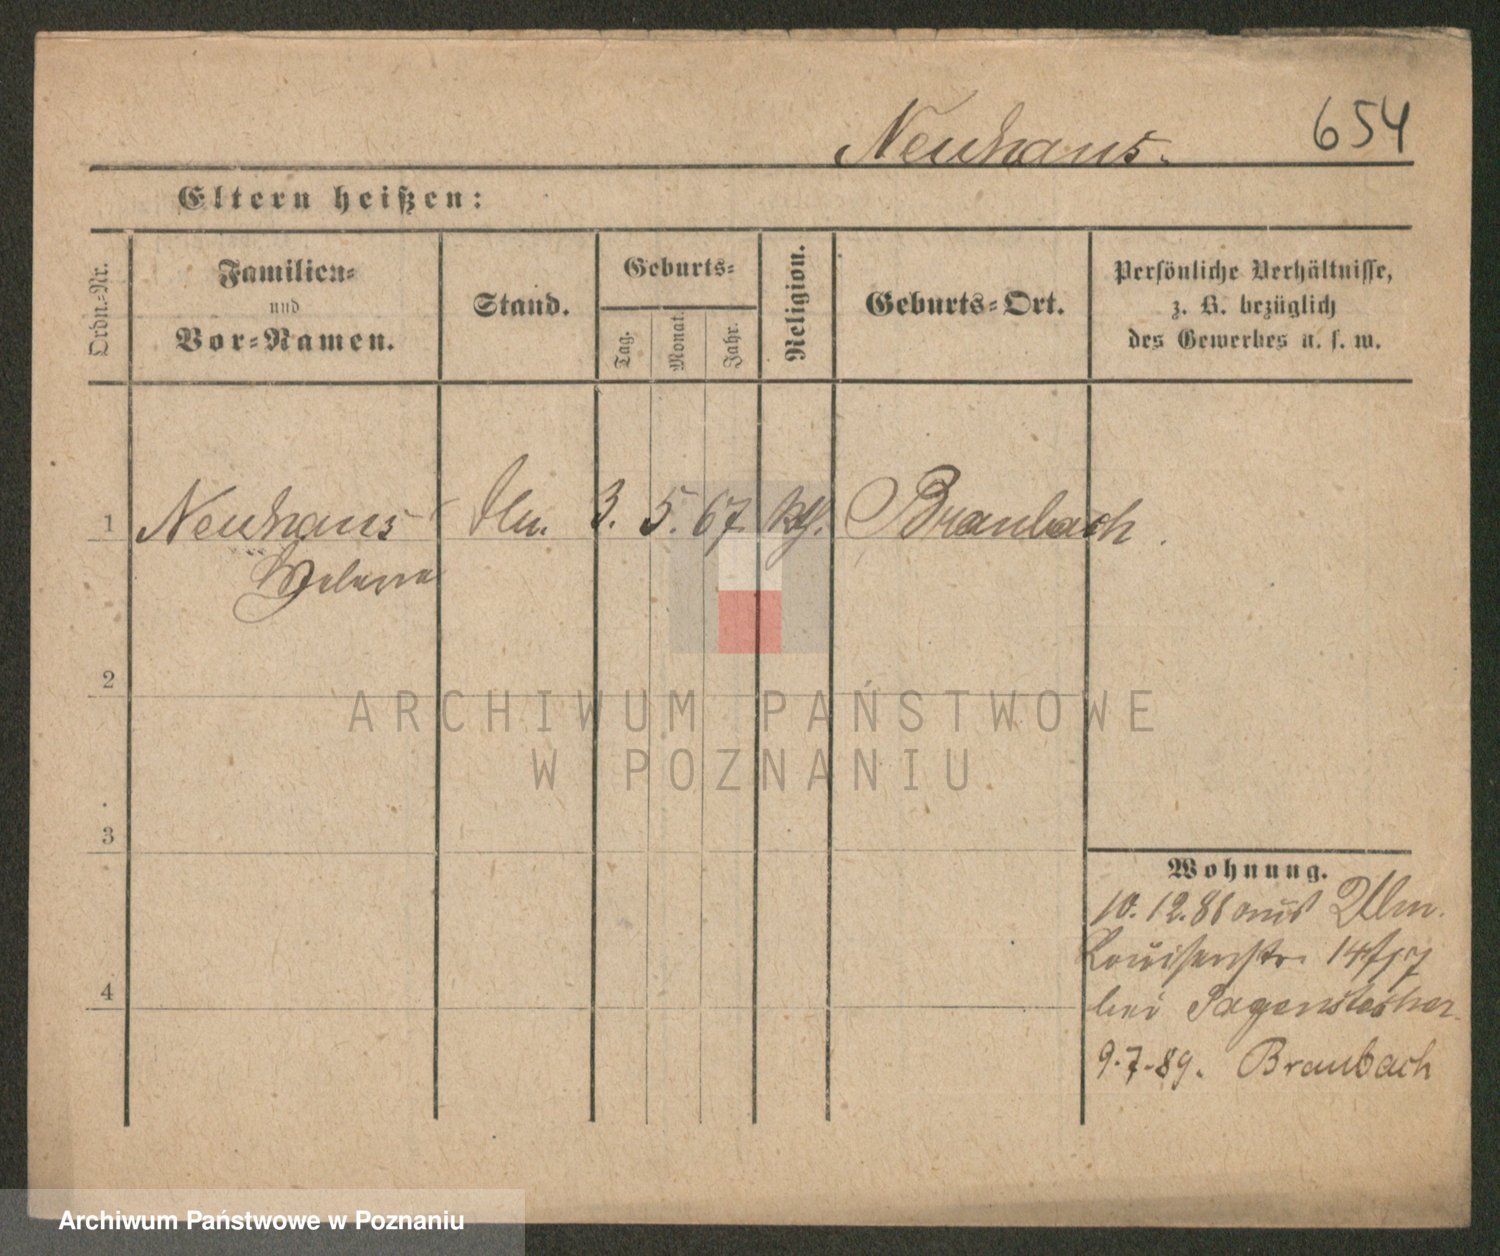 Neuhaus.
654
Eltern heißen:
Ordn.-Nr.
Familien-
und
Vor-Namen.
Stand.
Geburts-
Tag.
Monat.
Jahr.
Religion.
Geburts-Ort.
Persönliche Verhältnisse,
z. B. bezüglich
des Gewerbes u. s. w.
1
Neuhaus
3. 5. 67.
Braubach.
Helene
2
ARCHIWUM PAŃSTWOWE
W POZNANIU
3
Wohnung.
10. 12. 86 aus Ulm.
Louisenstr.
bei Pagenstecher
4
9.7.89. Braubach
Archiwum Państwowe w Poznaniu